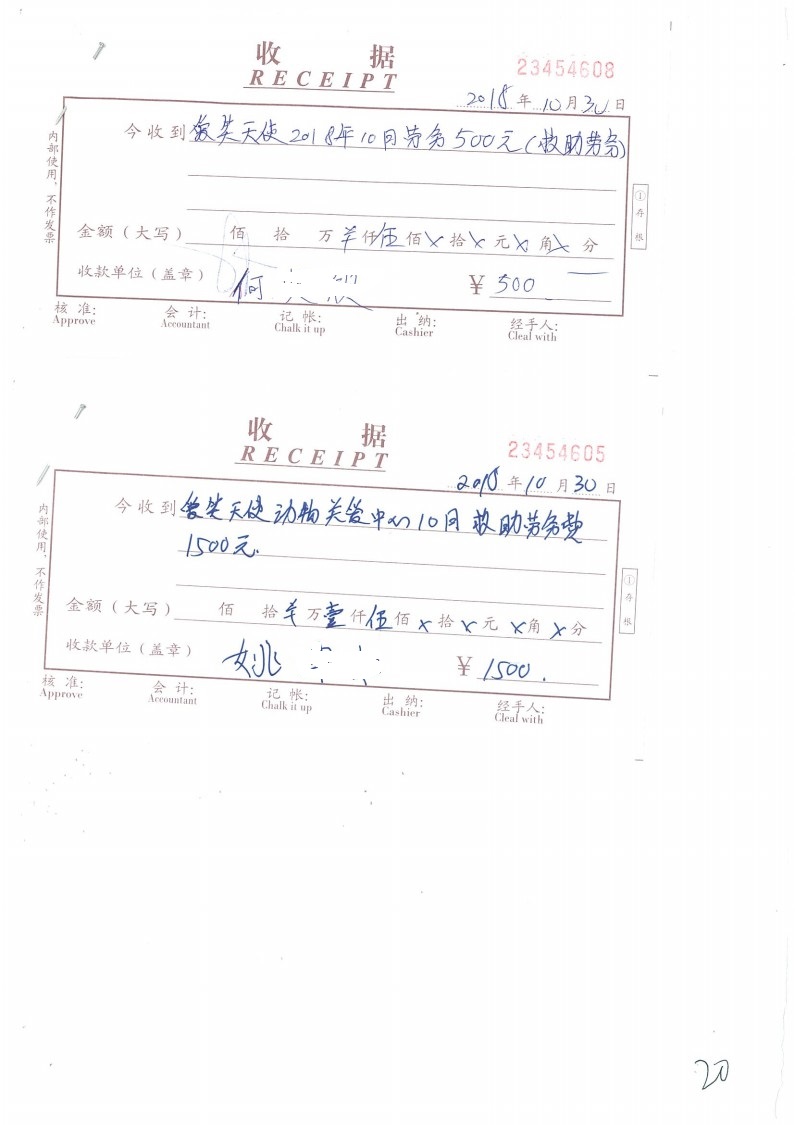 收 据
RECEIPT
23454608
2018 年 10 月 30 日
今收到微笑天使2018年10月劳务500元(救助劳务)
金额(大写) 佰 拾 万 羊 仟 伍 佰 x 拾 x 元 x 角 x 分
收款单位(盖章) 何 ¥ 500
内部使用,不作发票
①存根
核 准: 会 计: 记 帐: 出 纳: 经手人:
Approve Accountant Chalk it up Cashier Cleal with
收 据
RECEIPT
23454605
2018 年 10 月 30 日
今收到微笑天使动物关爱中心10月救助劳务费
1500元.
金额(大写) 佰 拾 羊 万 壹 仟 伍 佰 x 拾 x 元 x 角 x 分
收款单位(盖章) 姚 ¥ 1500.
内部使用,不作发票
①存根
核 准: 会 计: 记 帐: 出 纳: 经手人:
Approve Accountant Chalk it up Cashier Cleal with
20